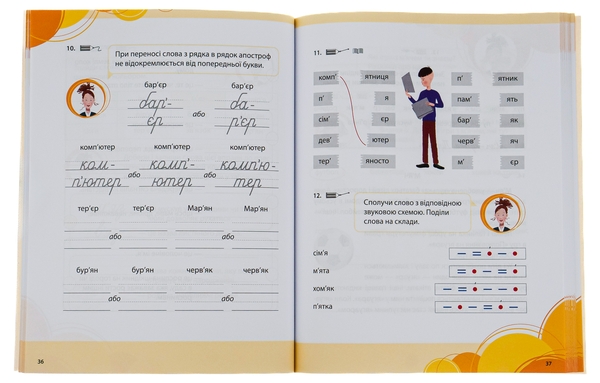 10.
При переносі слова з рядка в рядок апостроф
не відокремлюється від попередньої букви.
бар'єр бар'єр
бар'- або ба-
єр р'єр
комп'ютер комп'ютер комп'ютер
ком- або комп'- або комп'ю-
п'ютер ютер тер
тер'єр тер'єр Мар'ян Мар'ян
або або
бур'ян бур'ян черв'як черв'як
або або
36
11.
комп' ятниця п' ятник
п' я пам' ять
сім' єр бар' як
дев' ютер черв' яч
тер' яносто м' єр
12.
Сполучи слово з відповідною
звуковою схемою. Поділи
слова на склади.
сім'я
м'ята
хом'як
п'ятка
37